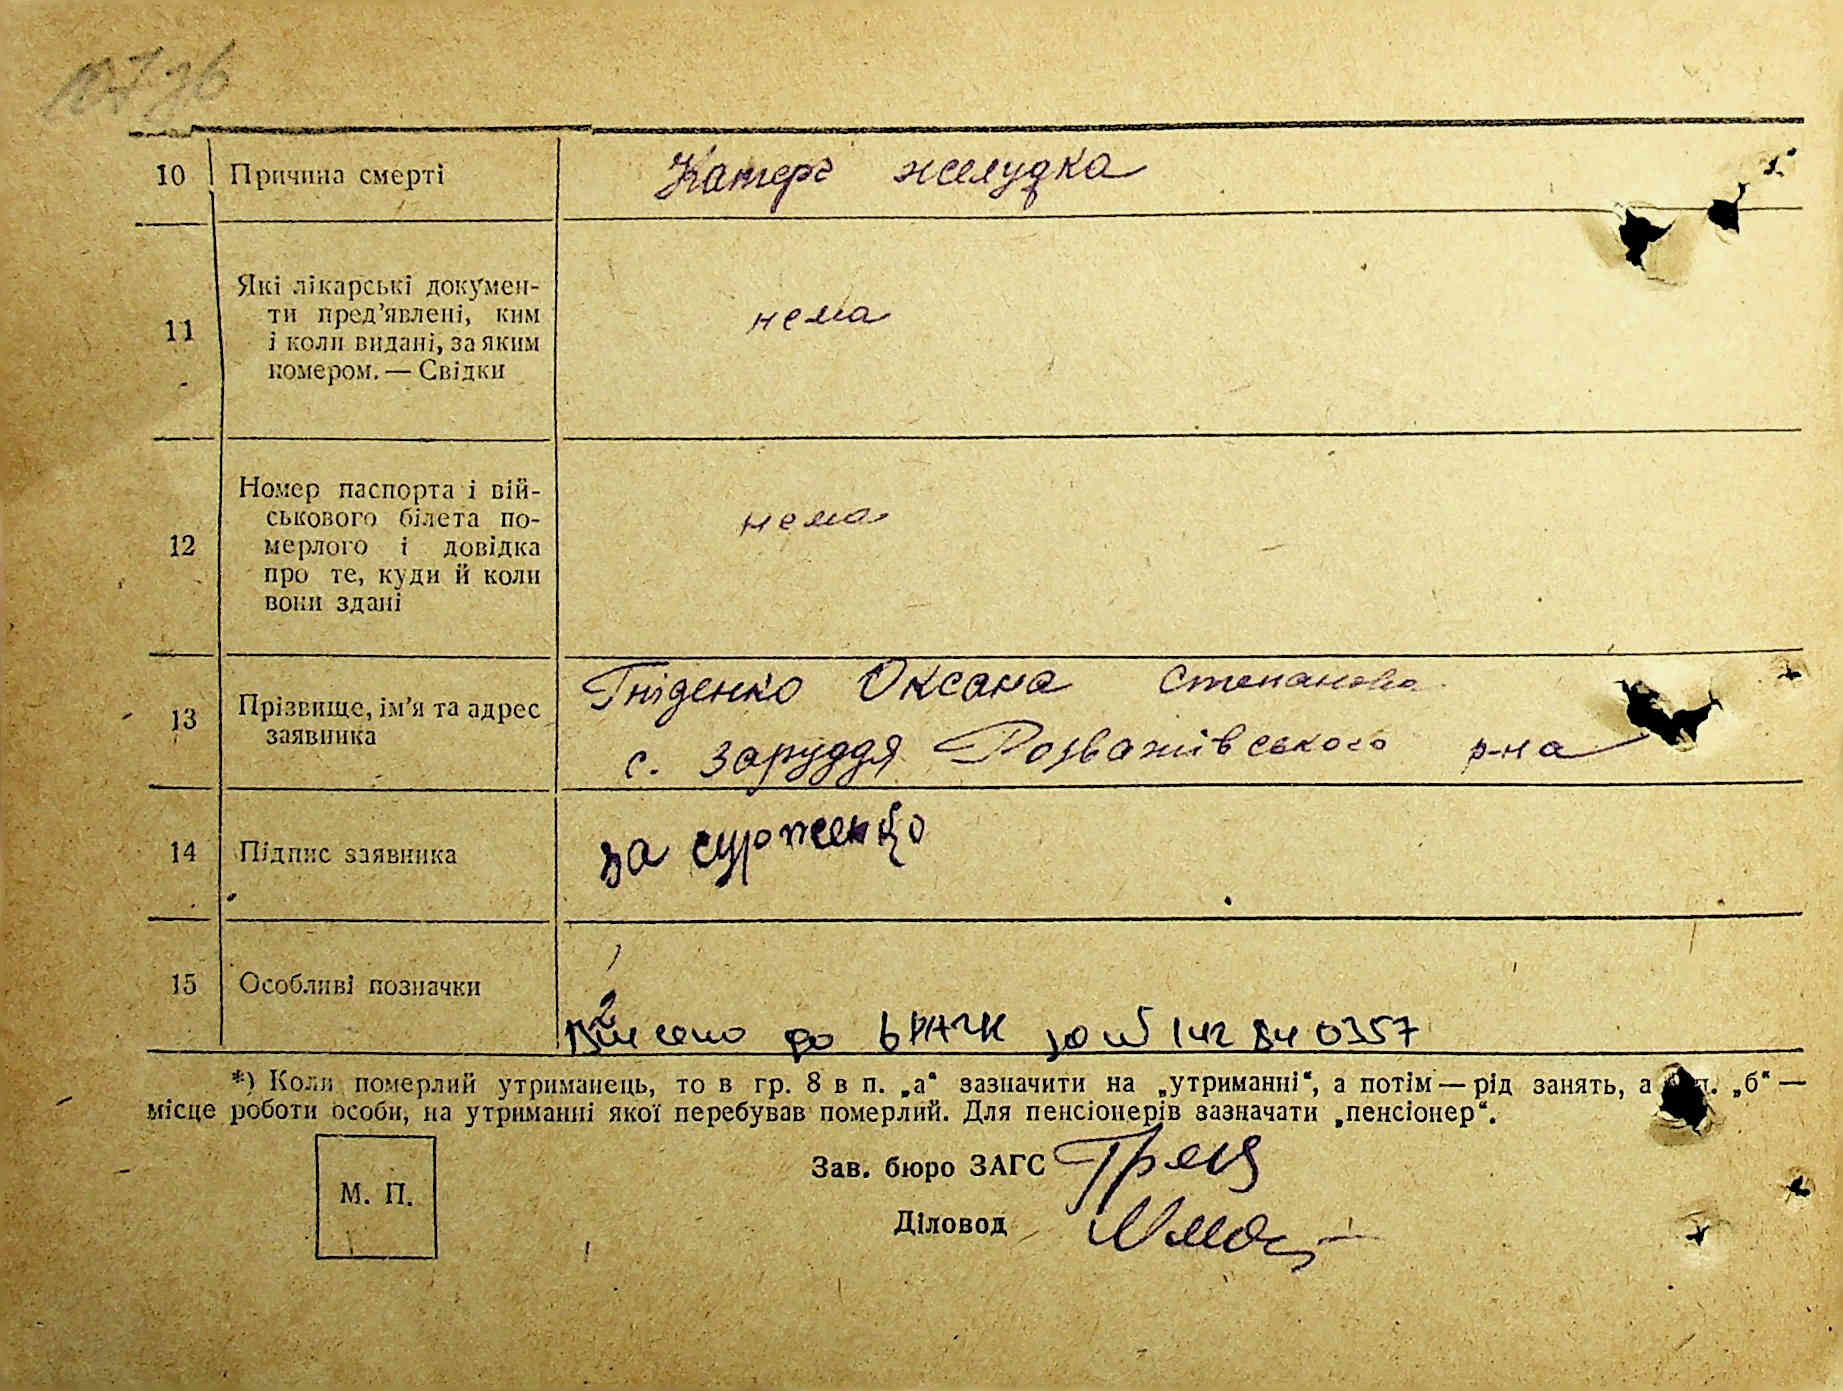 10 Причина смерті Катерг желудка
11 Які лікарські докумен-
ти пред’явлені, ким
і коли видані, за яким
номером. — Свідки
нема
12 Номер паспорта і вій-
ськового білета по-
мерлого і довідка
про те, куди й коли
вони здані
нема
13 Прізвище, ім’я та адрес
заявника
Гніденко Оксана Степановна
с. Заруддя Розважівського р-на
14 Підпис заявника за сурженко
15 Особливі позначки
Внесено до ДРАЦС за № 142 84 0357
*) Коли померлий утриманець, то в гр. 8 в п. „а“ зазначити на „утриманні“, а потім — рід занять, а п. „б“ —
місце роботи особи, на утриманні якої перебував померлий. Для пенсіонерів зазначати „пенсіонер“.
М. П.
Зав. бюро ЗАГС
Діловод